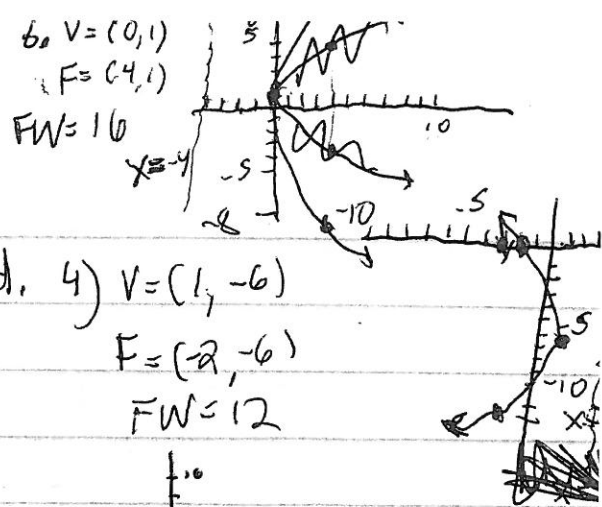 6. V = (0,1)
F = (4,1)
FW = 16
x = -4
5
10
-5
-8
-10
-5
d. 4) V = (1, -6)
F = (-2, -6)
FW = 12
-5
-10
10